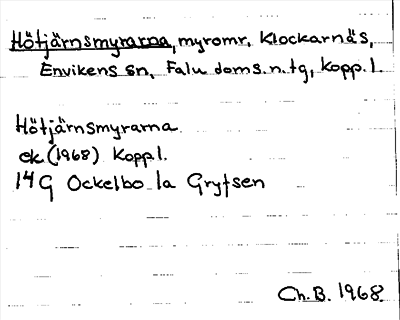 Hötjärnsmyrarna, myromr. Klockarnäs,
Envikens sn, Falu doms. n. tg, Kopp. l.
Hötjärnsmyrarna
ek. (1968) Kopp. l.
14 G Ockelbo 1a Grytsen
Ch. B. 1968.